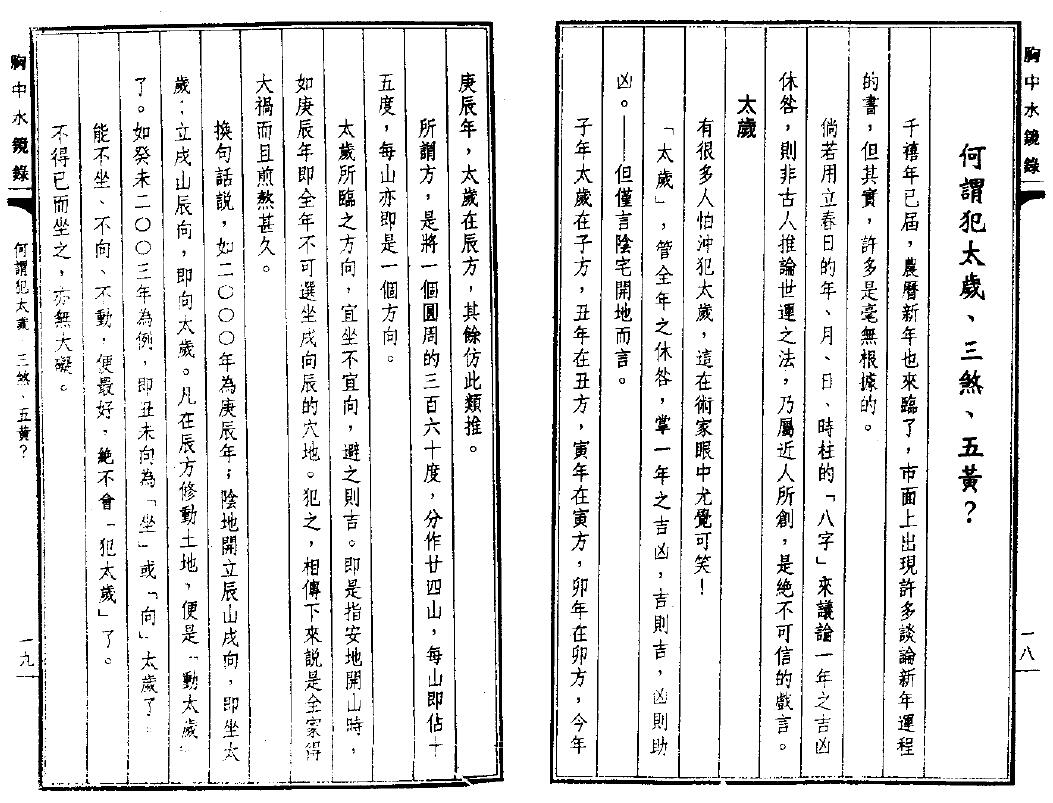 胸中水鏡錄
一八
何謂犯太歲、三煞、五黃？
千禧年已屆，農曆新年也來臨了，市面上出現許多談論新年運程
的書，但其實，許多是毫無根據的。
倘若用立春日的年、月、日、時柱的「八字」來議論一年之吉凶
休咎，則非古人推論世運之法，乃屬近人所創，是絕不可信的戲言。
太歲
有很多人怕沖犯太歲，這在術家眼中尤覺可笑！
「太歲」，管全年之休咎，掌一年之吉凶，吉則吉，凶則助
凶。——但僅言陰宅開地而言。
子年太歲在子方，丑年在丑方，寅年在寅方，卯年在卯方，今年
庚辰年，太歲在辰方，其餘仿此類推。
所謂方，是將一個圓周的三百六十度，分作廿四山，每山即佔十
五度，每山亦即是一個方向。
太歲所臨之方向，宜坐不宜向，避之則吉。即是指安地開山時，
如庚辰年即全年不可選坐戌向辰的穴地。犯之，相傳下來說是全家得
大禍而且煎熬甚久。
換句話說，如二〇〇〇年為庚辰年；陰地開立辰山戌向，即坐太
歲；立戌山辰向，即向太歲。凡在辰方修動土地，便是「動太歲」
了。如癸未二〇〇三年為例，即丑未向為「坐」或「向」太歲了。
能不坐、不向、不動，便最好，絕不會「犯太歲」了。
不得已而坐之，亦無大礙。
胸中水鏡錄
何謂犯太歲、三煞、五黃？
一九